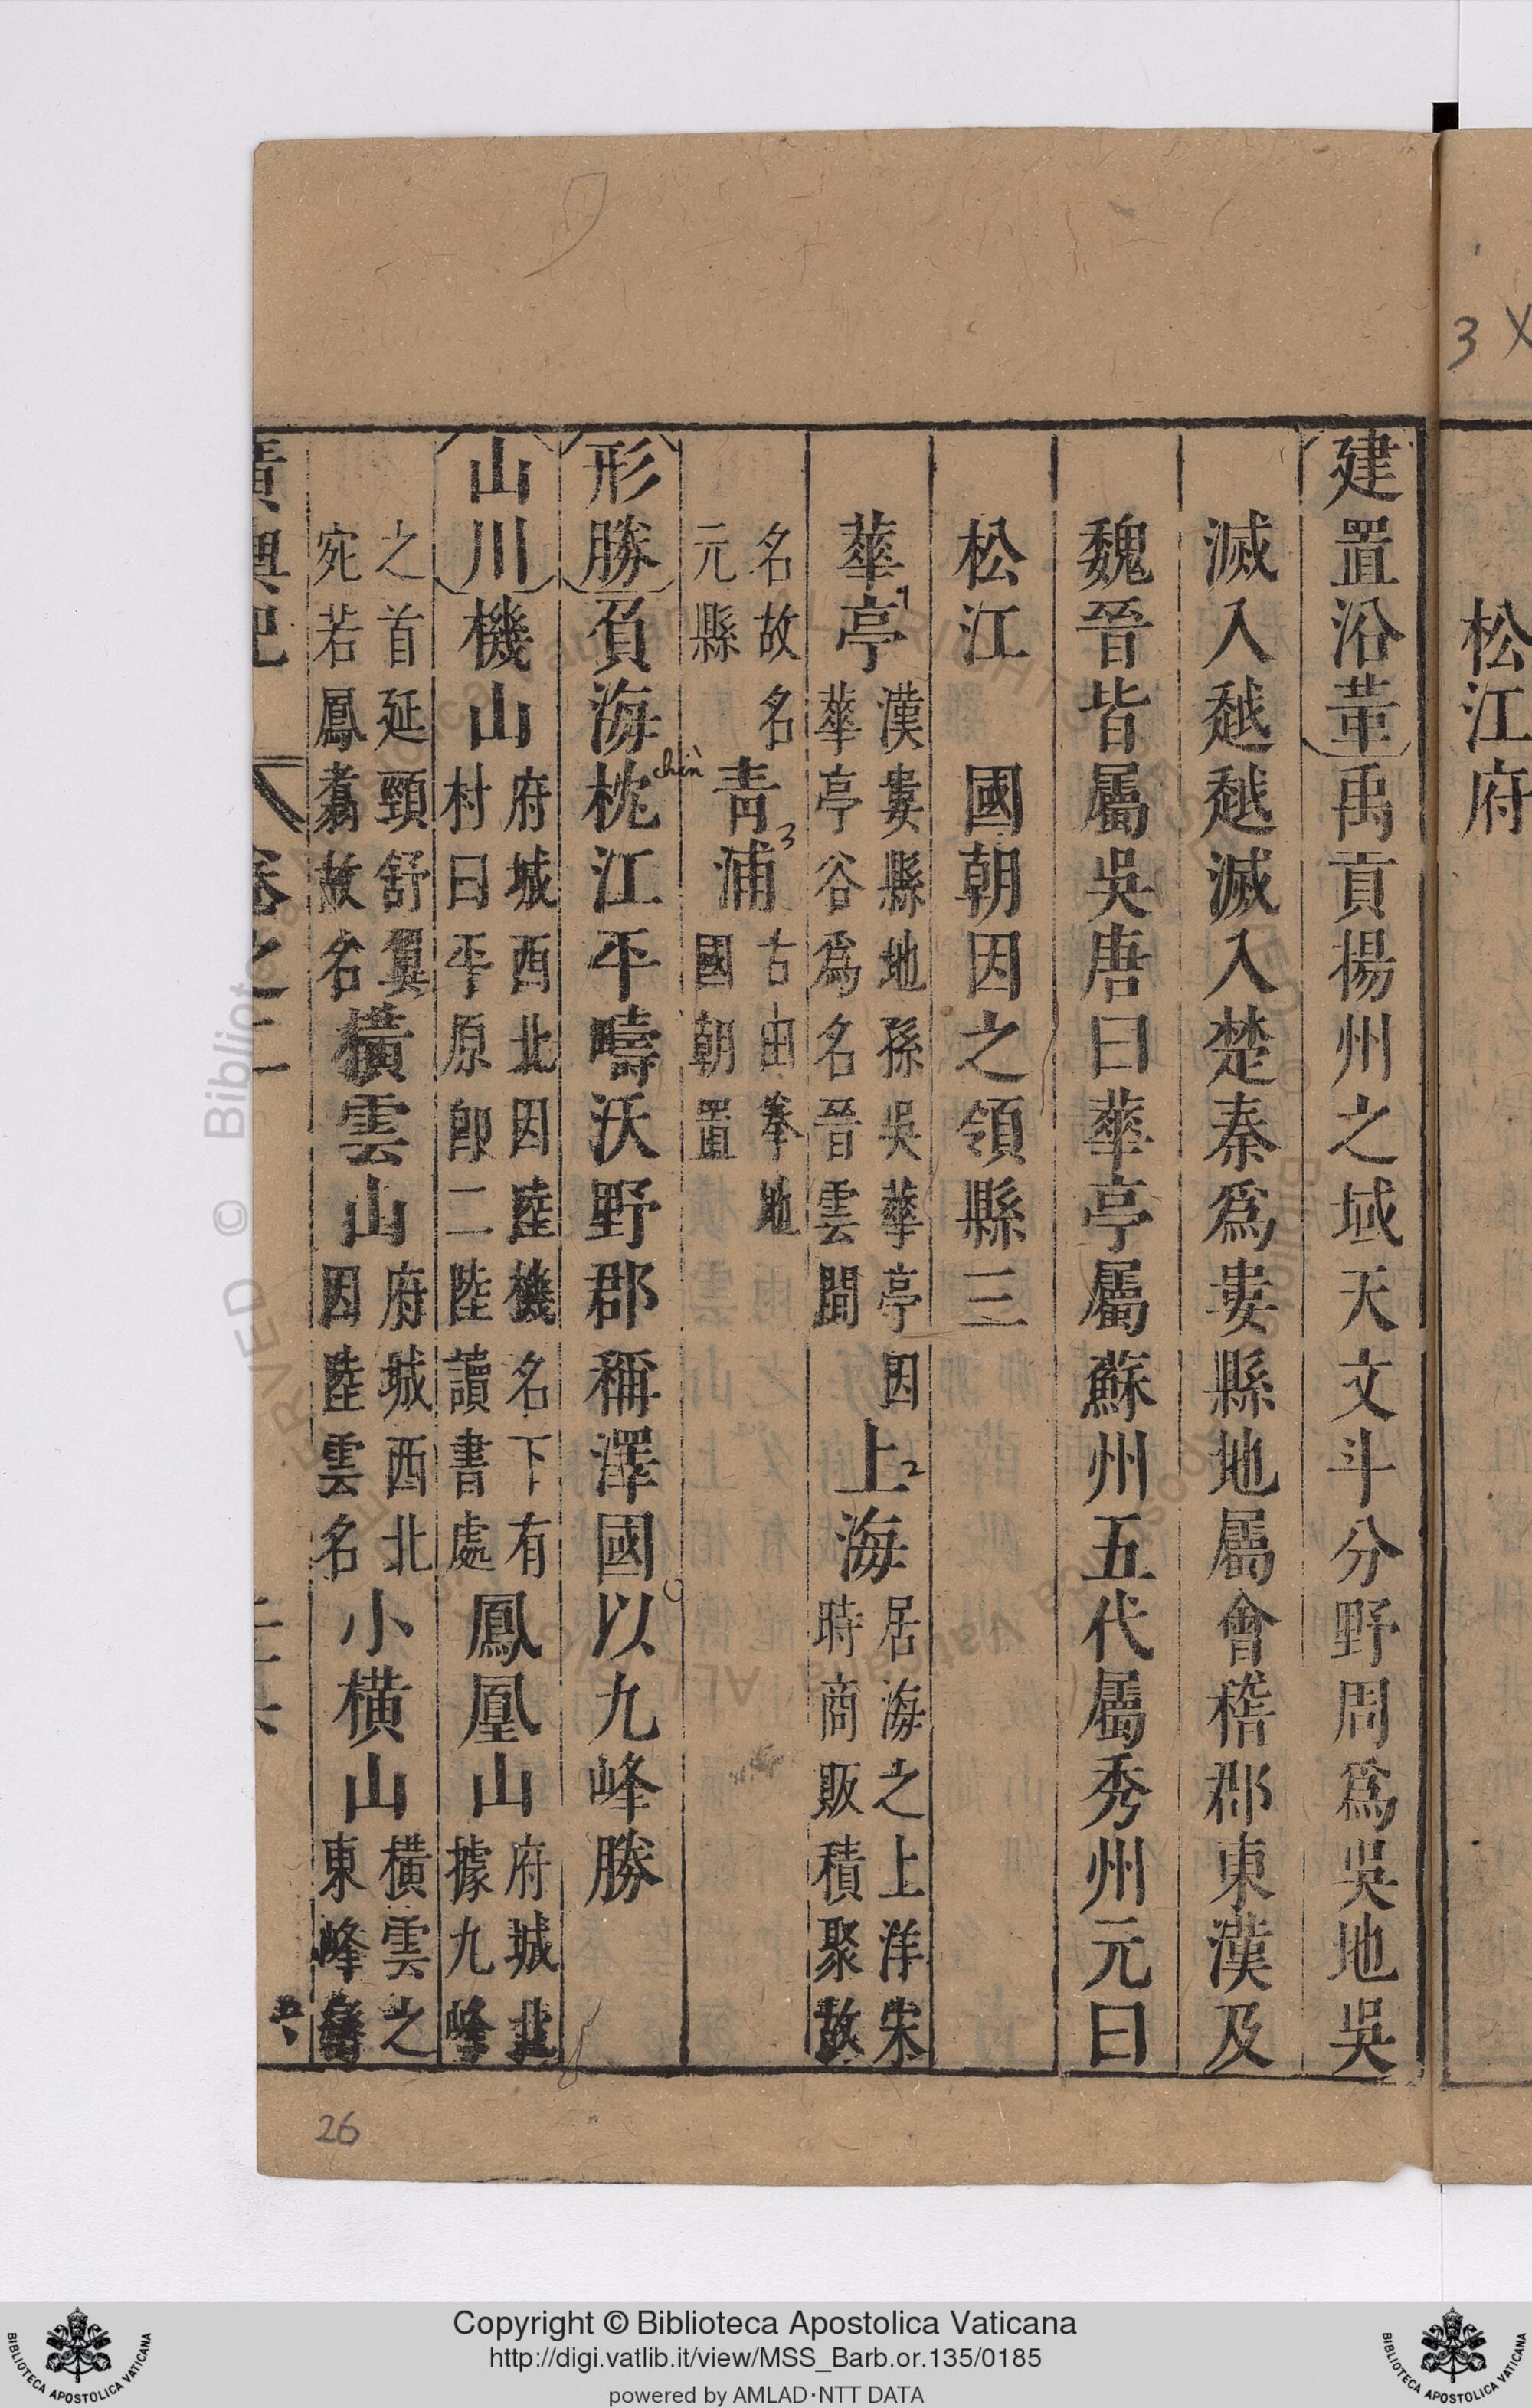 3 X
松江府
建置沿革禹貢揚州之域天文斗分野周爲吳地吳
滅入越越滅入楚秦爲婁縣地屬會稽郡東漢及
魏晉皆屬吳唐曰華亭屬蘇州五代屬秀州元曰
松江 國朝因之領縣三
華亭漢婁縣地孫吳華亭因
華亭谷爲名晉雲間
上海居海之上洋宋
時商販積聚故
名故名
元縣
青浦古由拳地
國朝置
形勝負海枕江平疇沃野郡稱澤國以九峰勝
chin
1
2
3
山川機山府城西北因陸機名下有
村曰平原卽二陸讀書處
鳳凰山府城北
據九峰
之首延頸舒翼
宛若鳳翥故名
橫雲山府城西北
因陸雲名
小橫山橫雲之
東峰
廣輿記 卷之二
26
© Biblioteca Apostolica Vaticana
Copyright © Biblioteca Apostolica Vaticana
http://digi.vatlib.it/view/MSS_Barb.or.135/0185
powered by AMLAD·NTT DATA
BIBLIOTECA APOSTOLICA VATICANA
BIBLIOTECA APOSTOLICA VATICANA